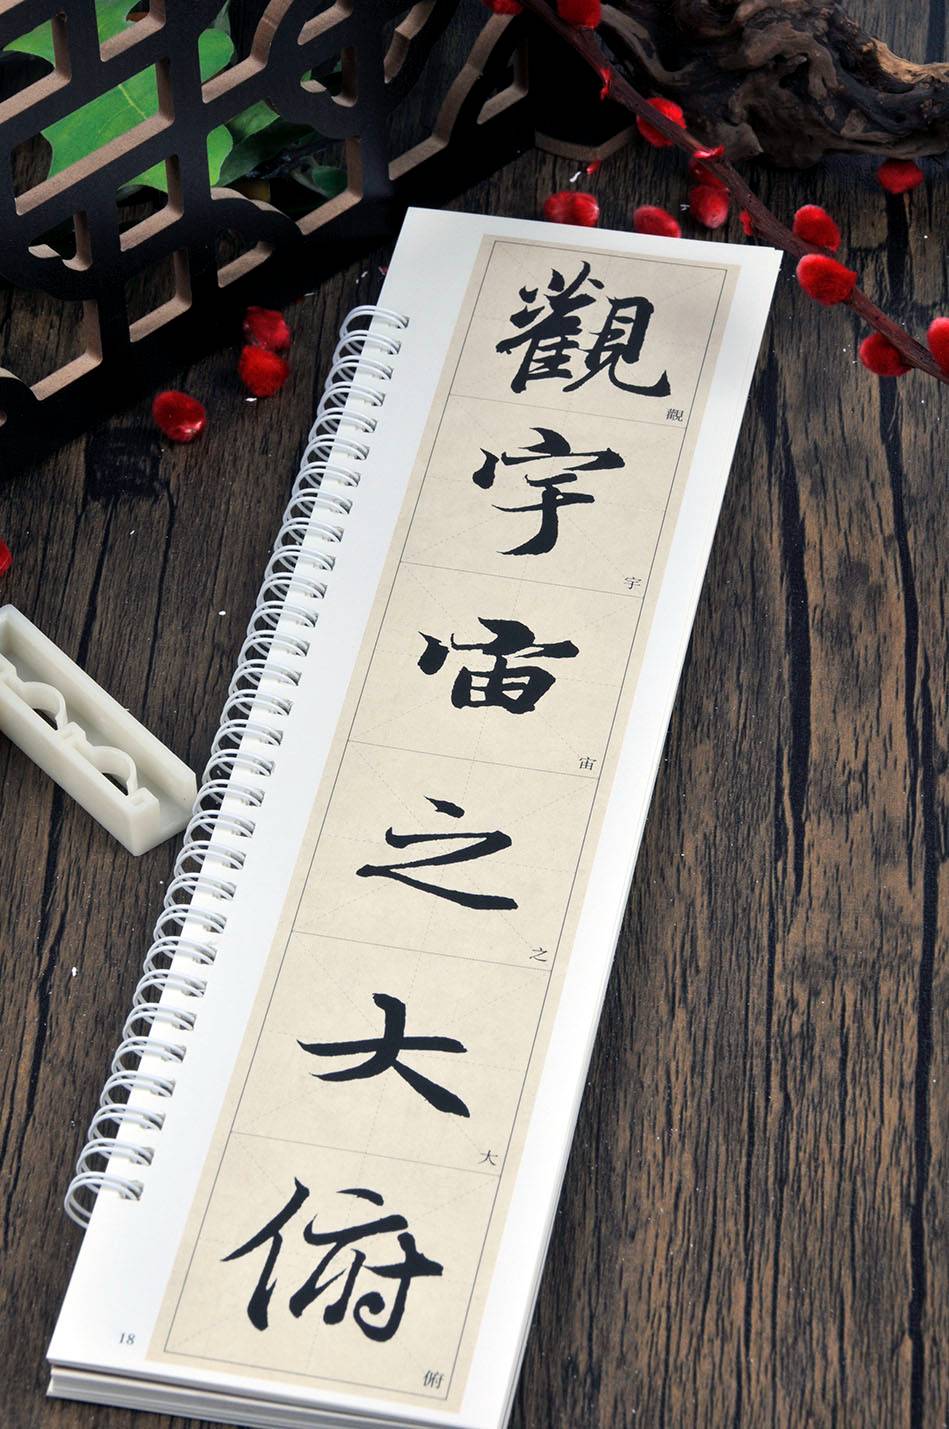 觀
觀
宇
宇
宙
宙
之
之
大
大
俯
俯
18